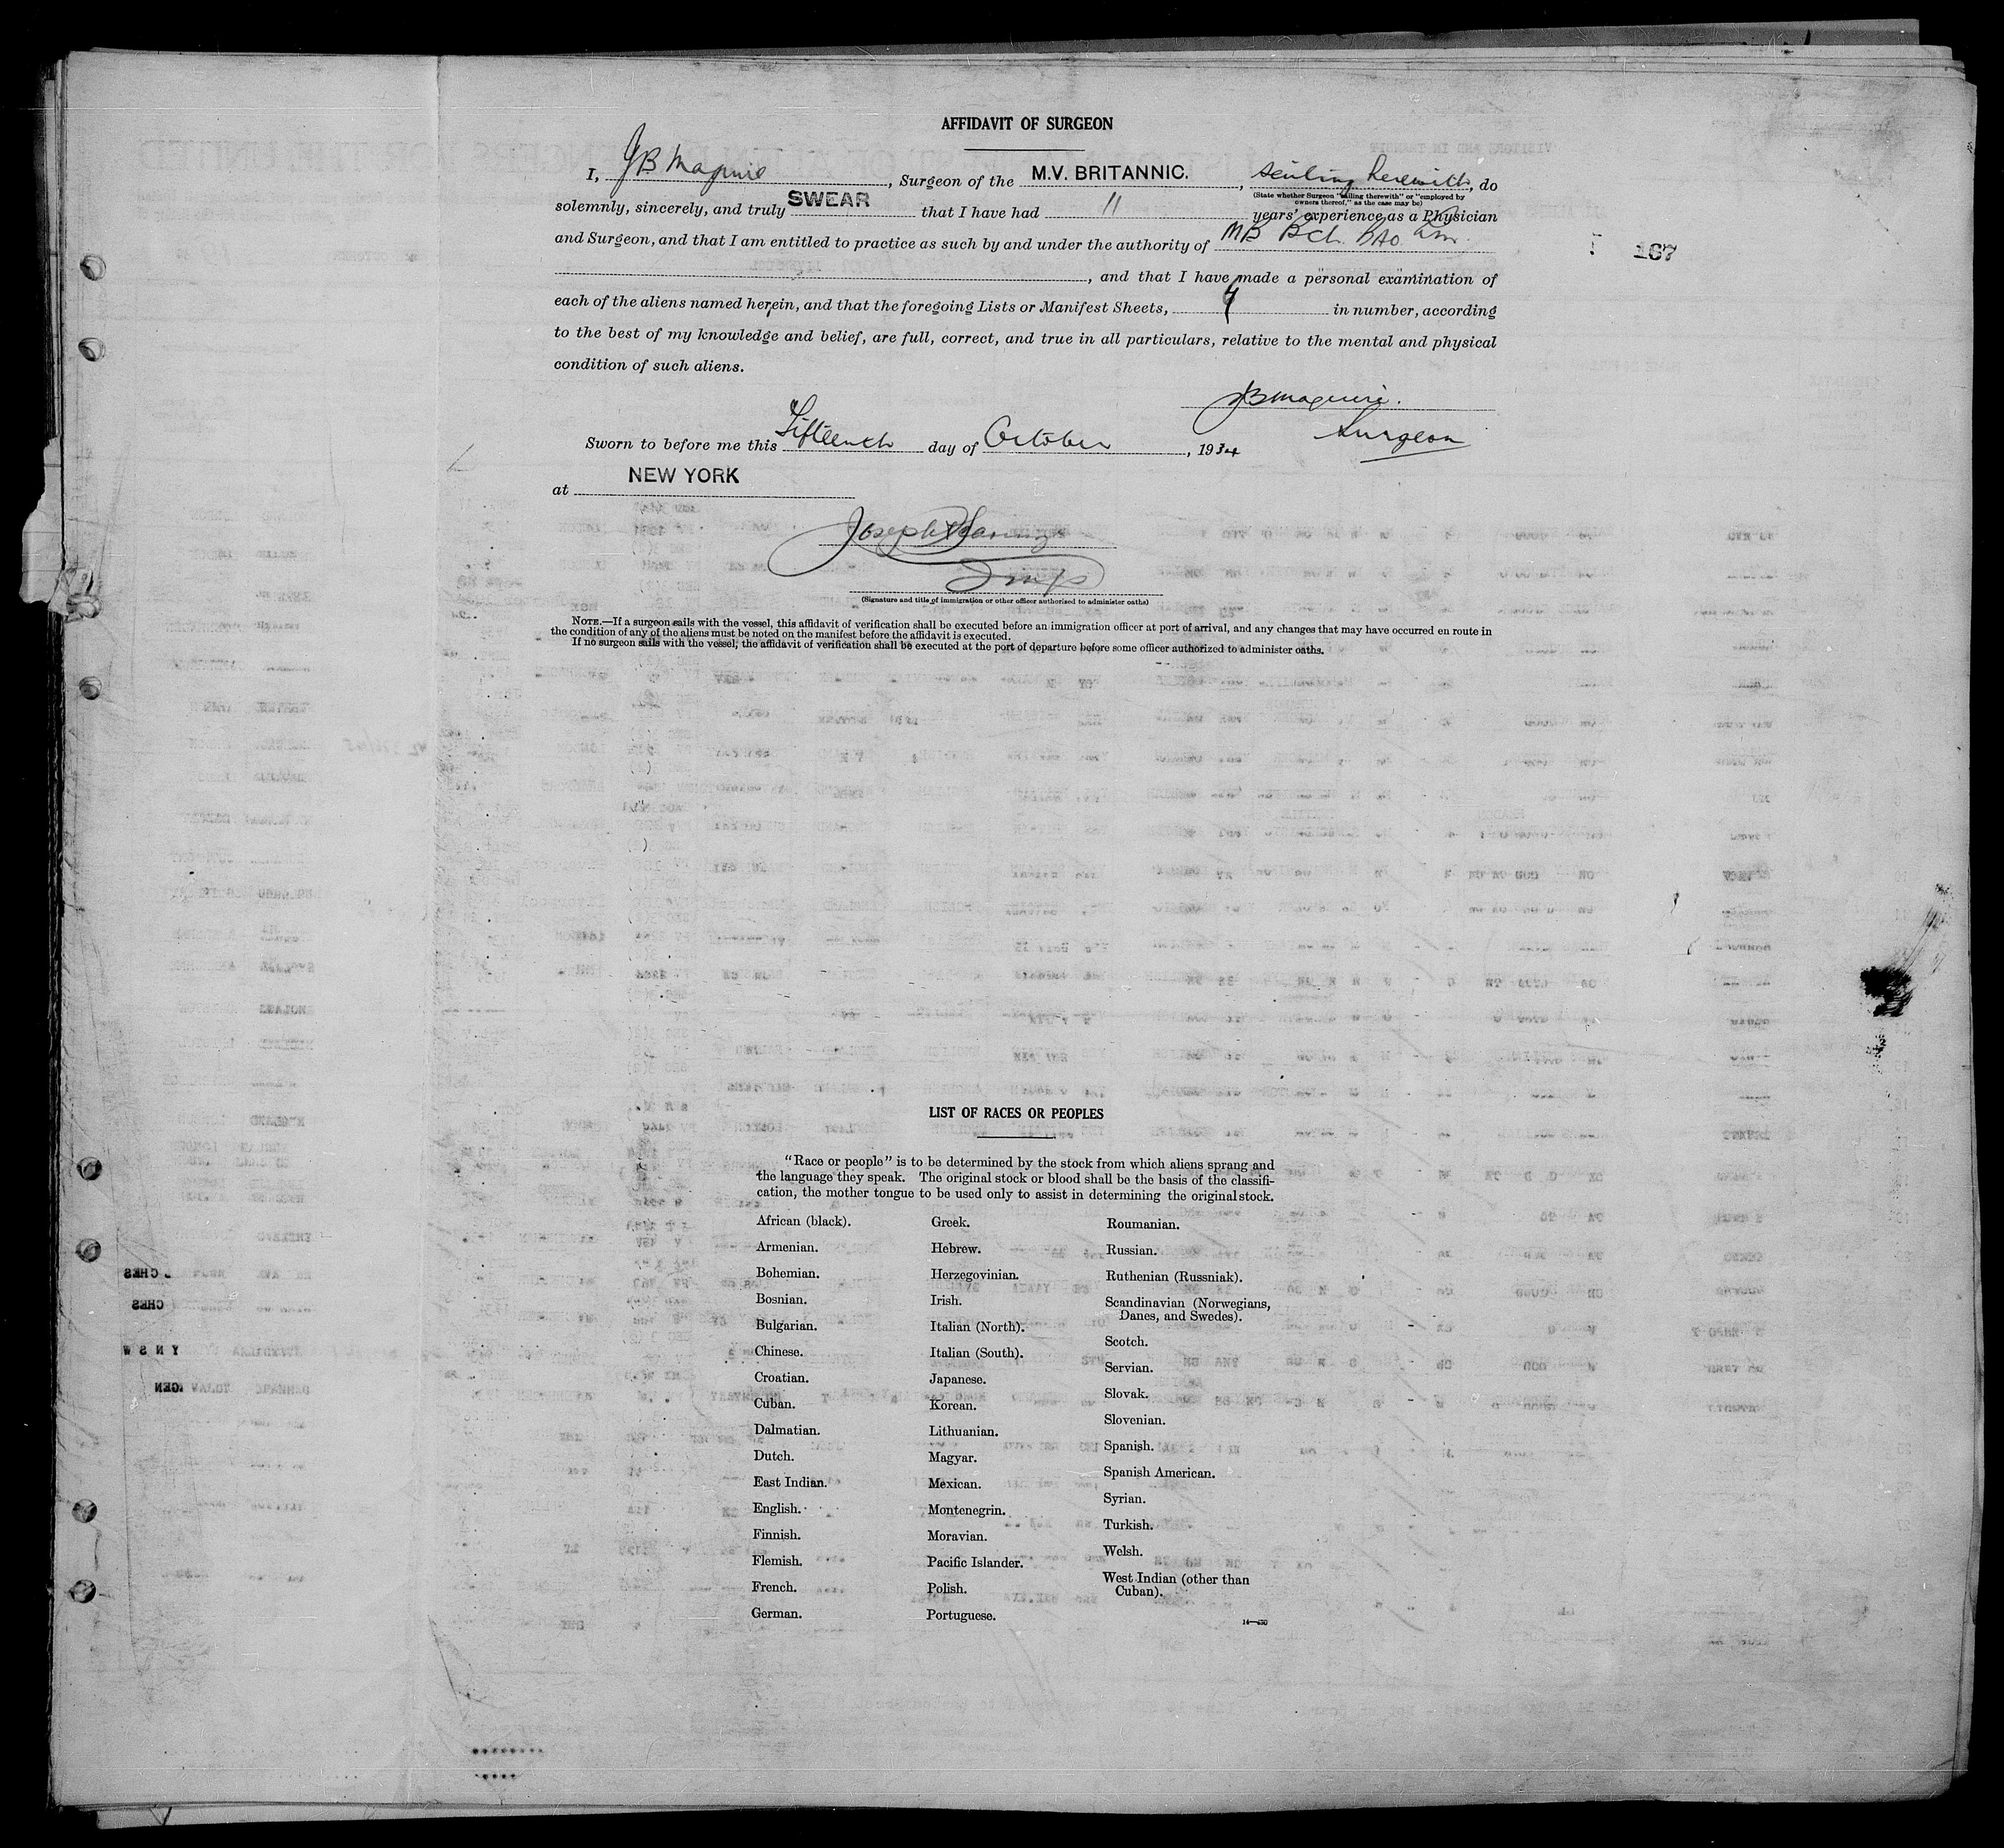 AFFIDAVIT OF SURGEON
I, JB Maguire, Surgeon of the M.V. BRITANNIC., sailing herewith, do
(State whether Surgeon "sailing therewith" or "employed by
owners thereof," as the case may be)
solemnly, sincerely, and truly SWEAR that I have had 11 years' experience as a Physician
and Surgeon, and that I am entitled to practice as such by and under the authority of MB BCh. BAO
167
, and that I have made a personal examination of
each of the aliens named herein, and that the foregoing Lists or Manifest Sheets, 4 in number, according
to the best of my knowledge and belief, are full, correct, and true in all particulars, relative to the mental and physical
condition of such aliens.
JB Maguire.
Surgeon
Sworn to before me this Fifteenth day of October, 1934
at NEW YORK
Joseph
(Signature and title of immigration or other officer authorised to administer oaths)
NOTE.—If a surgeon sails with the vessel, this affidavit of verification shall be executed before an immigration officer at port of arrival, and any changes that may have occurred en route in
the condition of any of the aliens must be noted on the manifest before the affidavit is executed.
If no surgeon sails with the vessel, the affidavit of verification shall be executed at the port of departure before some officer authorized to administer oaths.
LIST OF RACES OR PEOPLES
"Race or people" is to be determined by the stock from which aliens sprang and
the language they speak. The original stock or blood shall be the basis of the classifi-
cation, the mother tongue to be used only to assist in determining the original stock.
African (black).
Armenian.
Bohemian.
Bosnian.
Bulgarian.
Chinese.
Croatian.
Cuban.
Dalmatian.
Dutch.
East Indian.
English.
Finnish.
Flemish.
French.
German.
Greek.
Hebrew.
Herzegovinian.
Irish.
Italian (North).
Italian (South).
Japanese.
Korean.
Lithuanian.
Magyar.
Mexican.
Montenegrin.
Moravian.
Pacific Islander.
Polish.
Portuguese.
Roumanian.
Russian.
Ruthenian (Russniak).
Scandinavian (Norwegians,
Danes, and Swedes).
Scotch.
Servian.
Slovak.
Slovenian.
Spanish.
Spanish American.
Syrian.
Turkish.
Welsh.
West Indian (other than
Cuban).